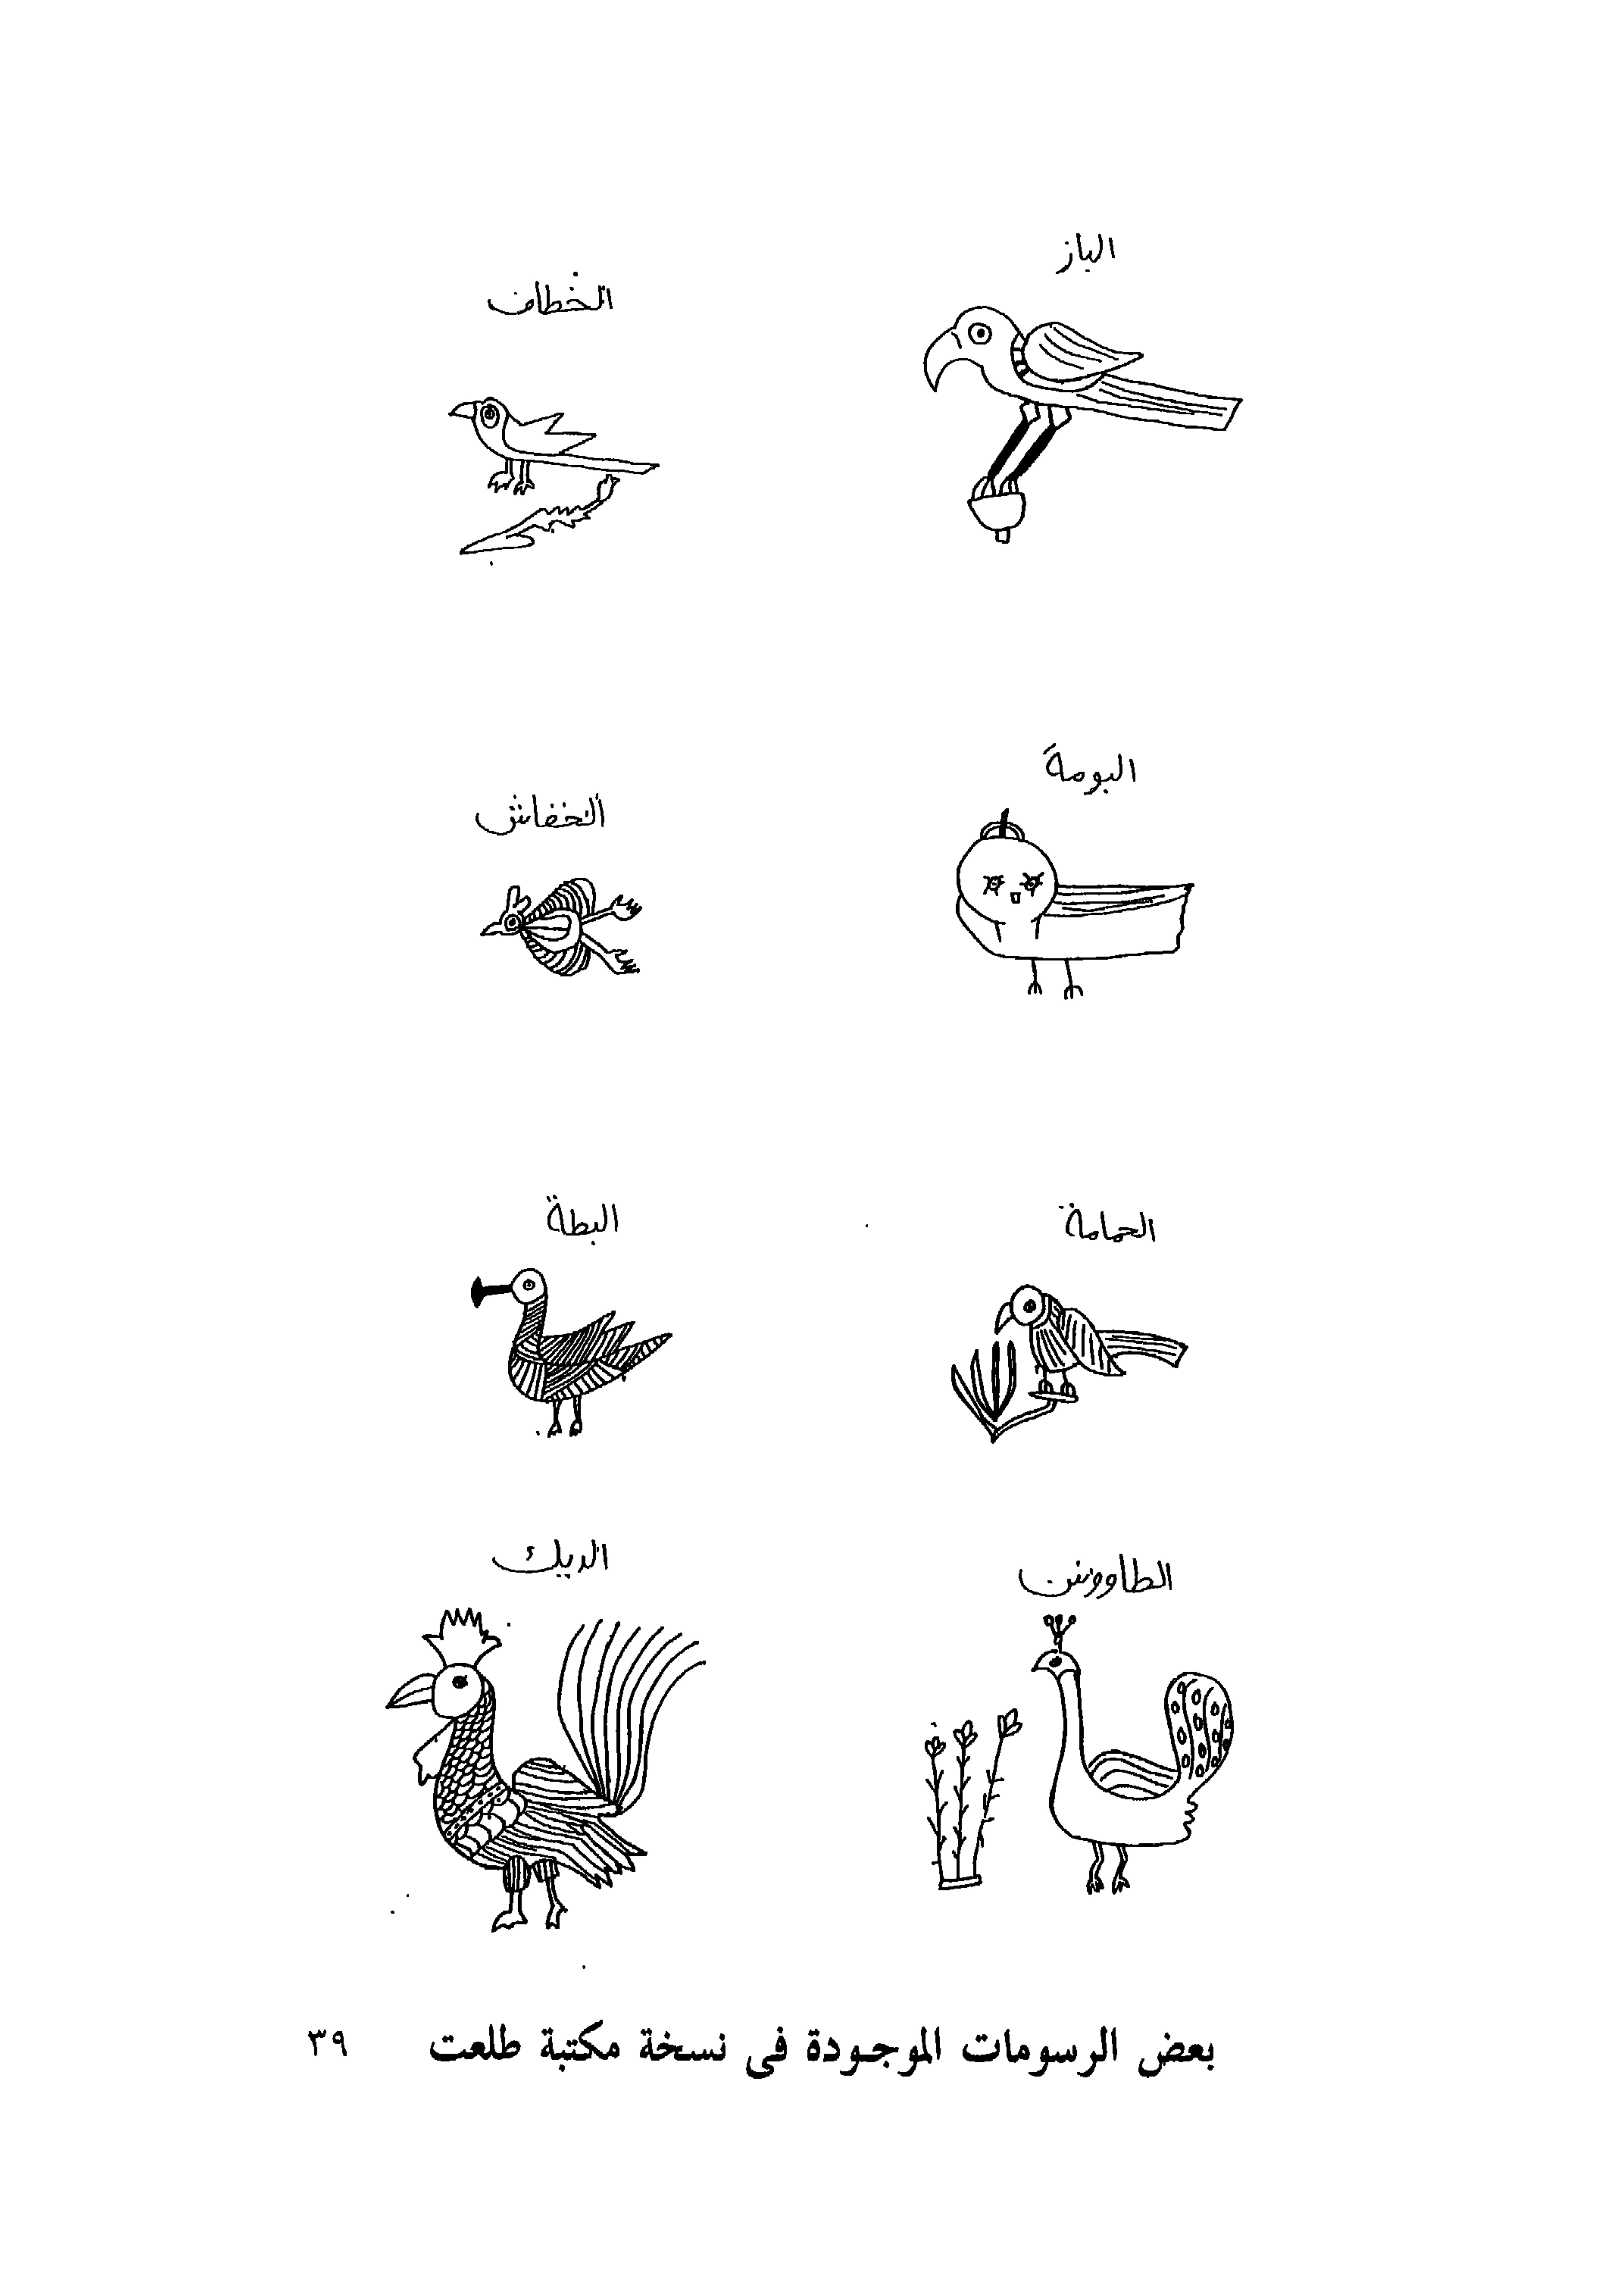 الباز
الخطاف
البومة
الخفاش
الحمامة
البطة
الطاووس
الديك
بعض الرسومات الموجودة فى نسخة مكتبة طلعت
٣٩